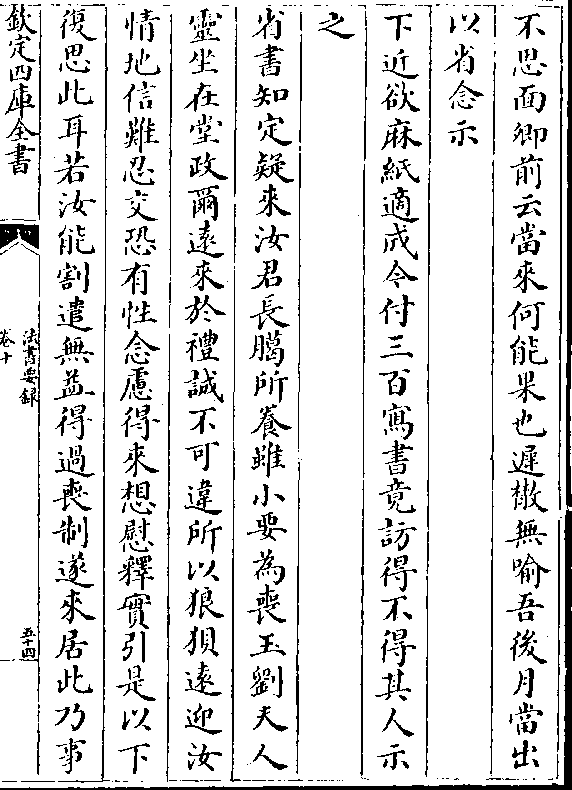 不思面卿前云當來何能果也遲散無喻吾後月當出
以省念示
下近欲麻紙適成今付三百寫書竟訪得不得其人示
之
省書知定疑來汝君長臈所養雖小要為喪主劉夫人
靈坐在堂政爾遠來於禮誠不可違所以狼狽遠迎汝
情地信難忍交恐有性念慮得來想慰釋實引是以下
復思此耳若汝能割遣無益得過喪制遂來居此乃事
欽定四庫全書
法書要録
卷十
五十四